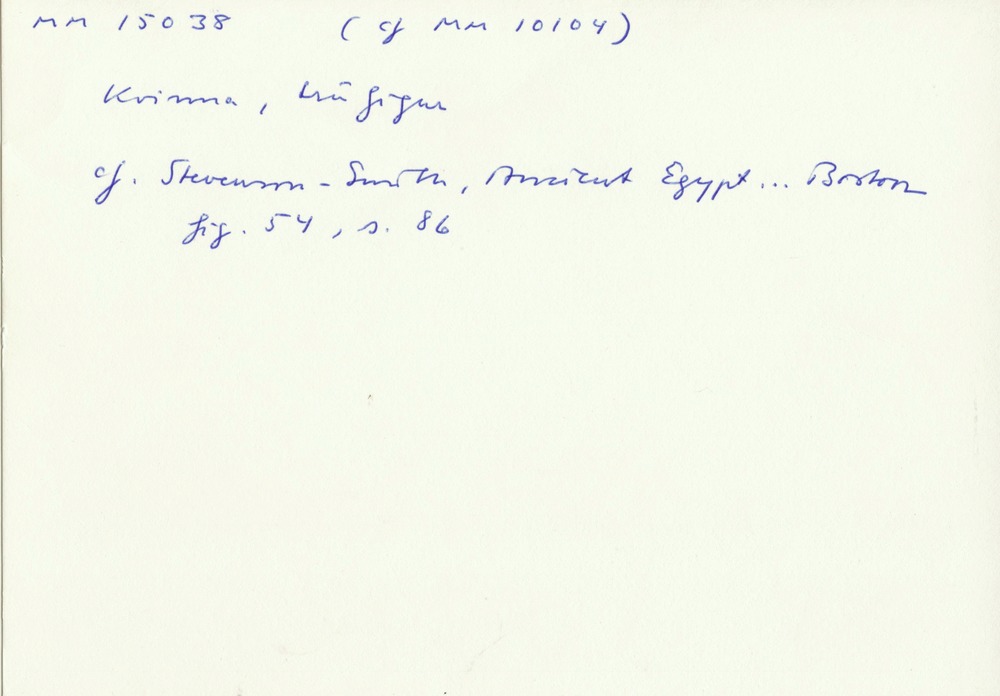 MM 15038 (cf MM 10104)
Kvinna, träfigur
cf. Stevenson-Smith, Ancient Egypt... Boston
fig. 54, s. 86